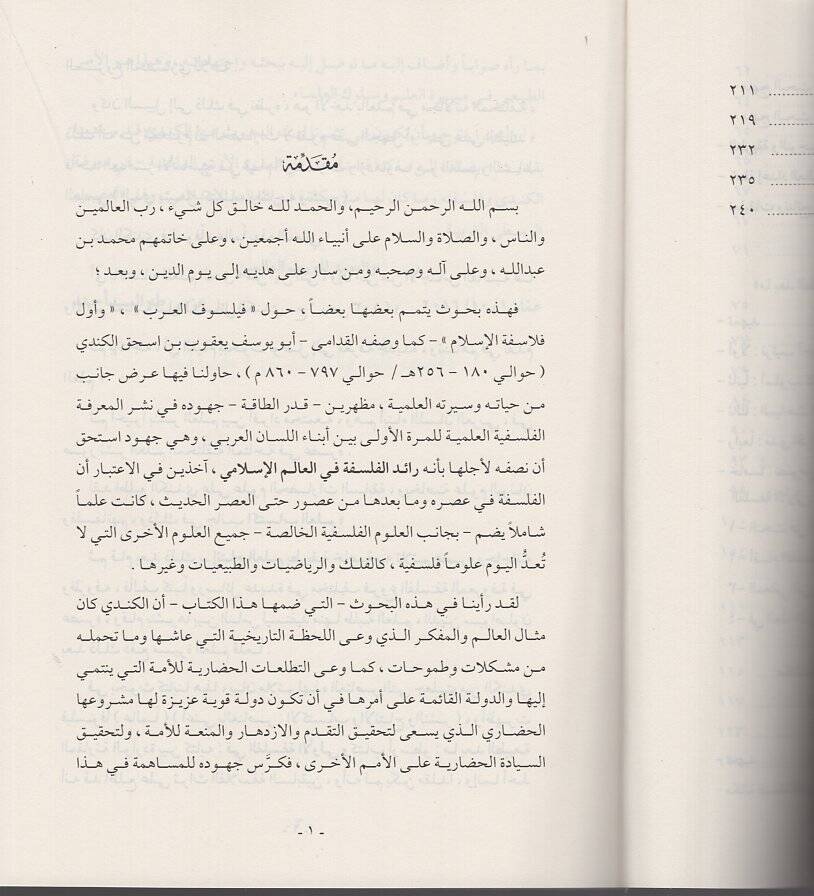 مُقدِّمة
بسم الله الرحمن الرحيم، والحمد لله خالق كل شيء، رب العالمين
والناس، والصلاة والسلام على أنبياء الله أجمعين، وعلى خاتمهم محمد بن
عبدالله، وعلى آله وصحبه ومن سار على هديه إلى يوم الدين، وبعد؛
فهذه بحوث يتمم بعضها بعضاً، حول «فيلسوف العرب»، «وأول
فلاسفة الإسلام» – كما وصفه القدامى – أبو يوسف يعقوب بن اسحق الكندي
(حوالي ١٨٠ – ٢٥٦هـ/ حوالي ٧٩٧ – ٨٦٠ م)، حاولنا فيها عرض جانب
من حياته وسيرته العلمية، مظهرين – قدر الطاقة – جهوده في نشر المعرفة
الفلسفية العلمية للمرة الأولى بين أبناء اللسان العربي، وهي جهود استحق
أن نصفه لأجلها بأنه رائد الفلسفة في العالم الإسلامي، آخذين في الاعتبار أن
الفلسفة في عصره وما بعدها من عصور حتى العصر الحديث، كانت علماً
شاملاً يضم – بجانب العلوم الفلسفية الخالصة – جميع العلوم الأخرى التي لا
تُعدُّ اليوم علوماً فلسفية، كالفلك والرياضيات والطبيعيات وغيرها.
لقد رأينا في هذه البحوث – التي ضمها هذا الكتاب – أن الكندي كان
مثال العالم والمفكر الذي وعى اللحظة التاريخية التي عاشها وما تحمله
من مشكلات وطموحات، كما وعى التطلعات الحضارية للأمة التي ينتمي
إليها والدولة القائمة على أمرها في أن تكون دولة قوية عزيزة لها مشروعها
الحضاري الذي يسعى لتحقيق التقدم والازدهار والمنعة للأمة، ولتحقيق
السيادة الحضارية على الأمم الأخرى، فكرَّس جهوده للمساهمة في هذا
- ١ -
٢١١
٢١٩
٢٣٢
٢٣٥
٢٤٠